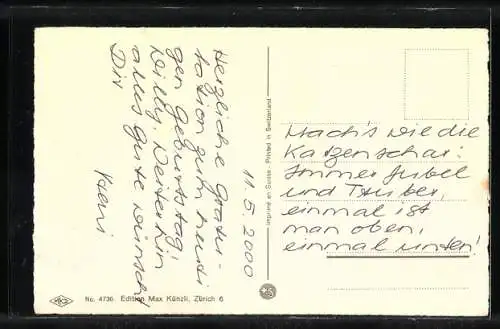 Herzliche Gratu-
lation zum heuti
gen Geburtstag!
Willy. Weiterhin
alles Gute wünscht
Dir
11.5.2000
Mach's wie die
Katzenschar:
Immer Jubel
und Trubel,
einmal ist
man oben,
einmal unten!
Imprimé en Suisse - Printed in Switzerland
No. 4736 Edition Max Künzli, Zürich 6